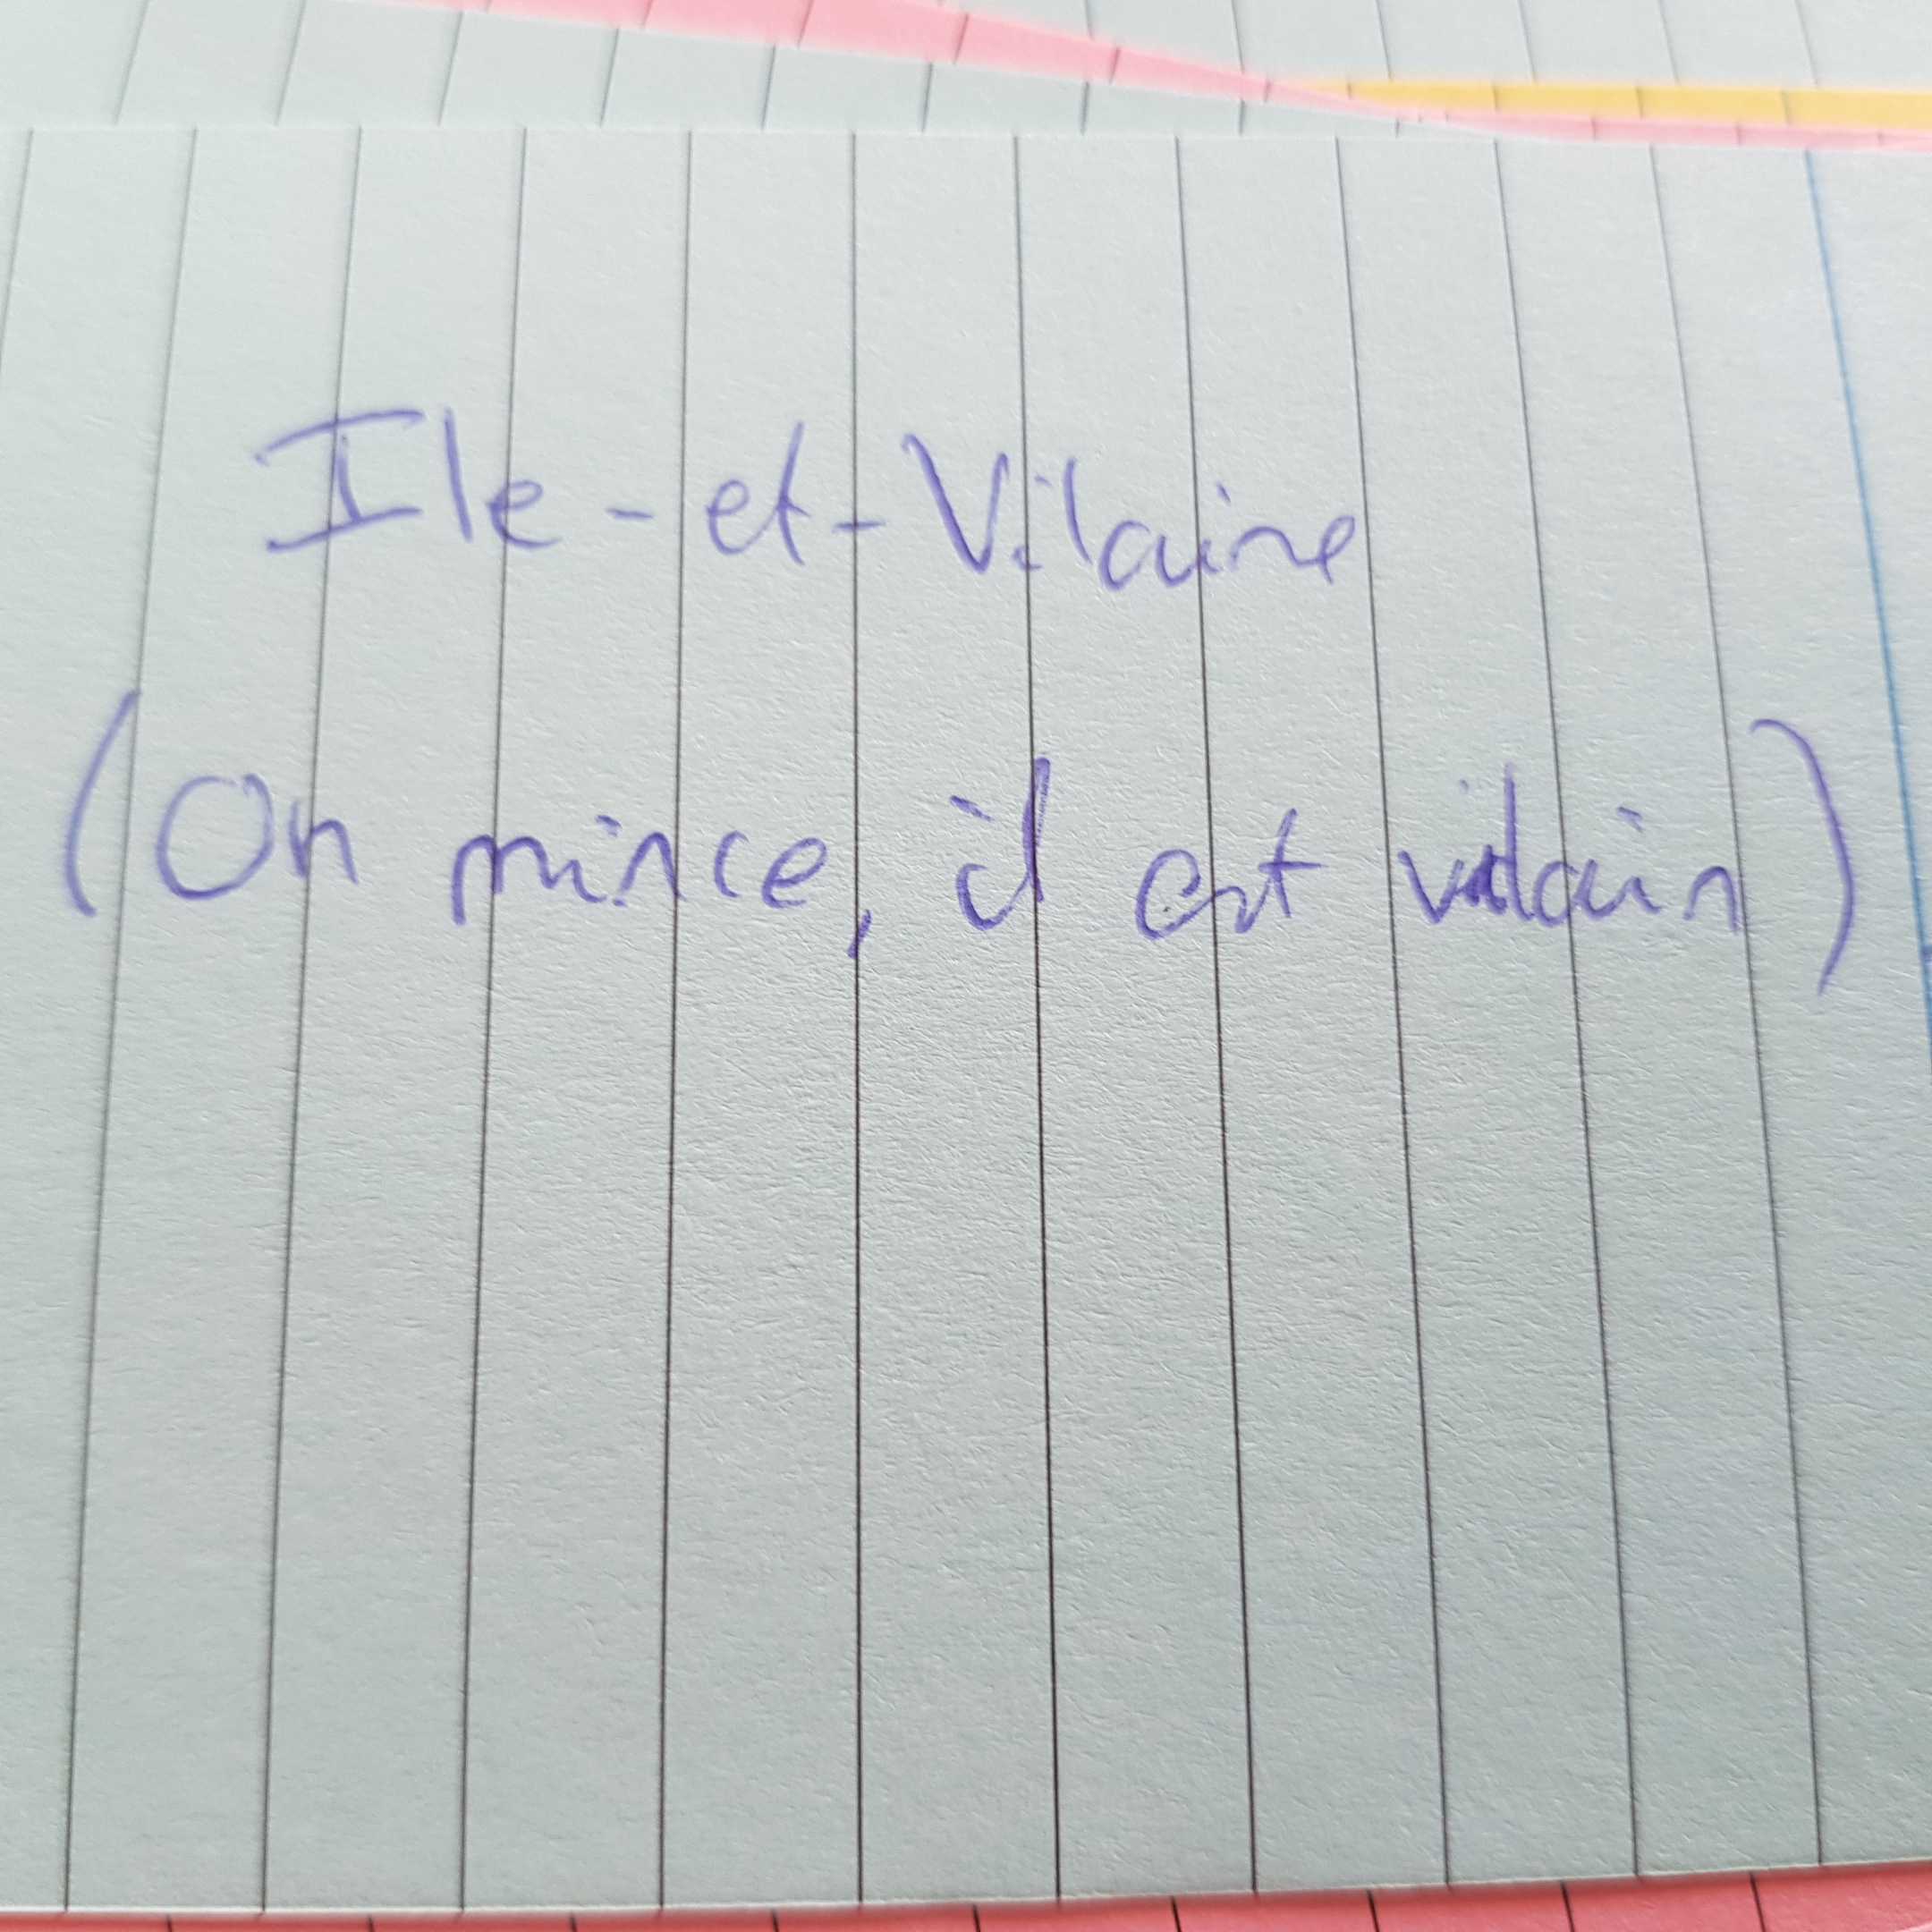 Ile-et-Vilaine
(On mince, il est vilain)